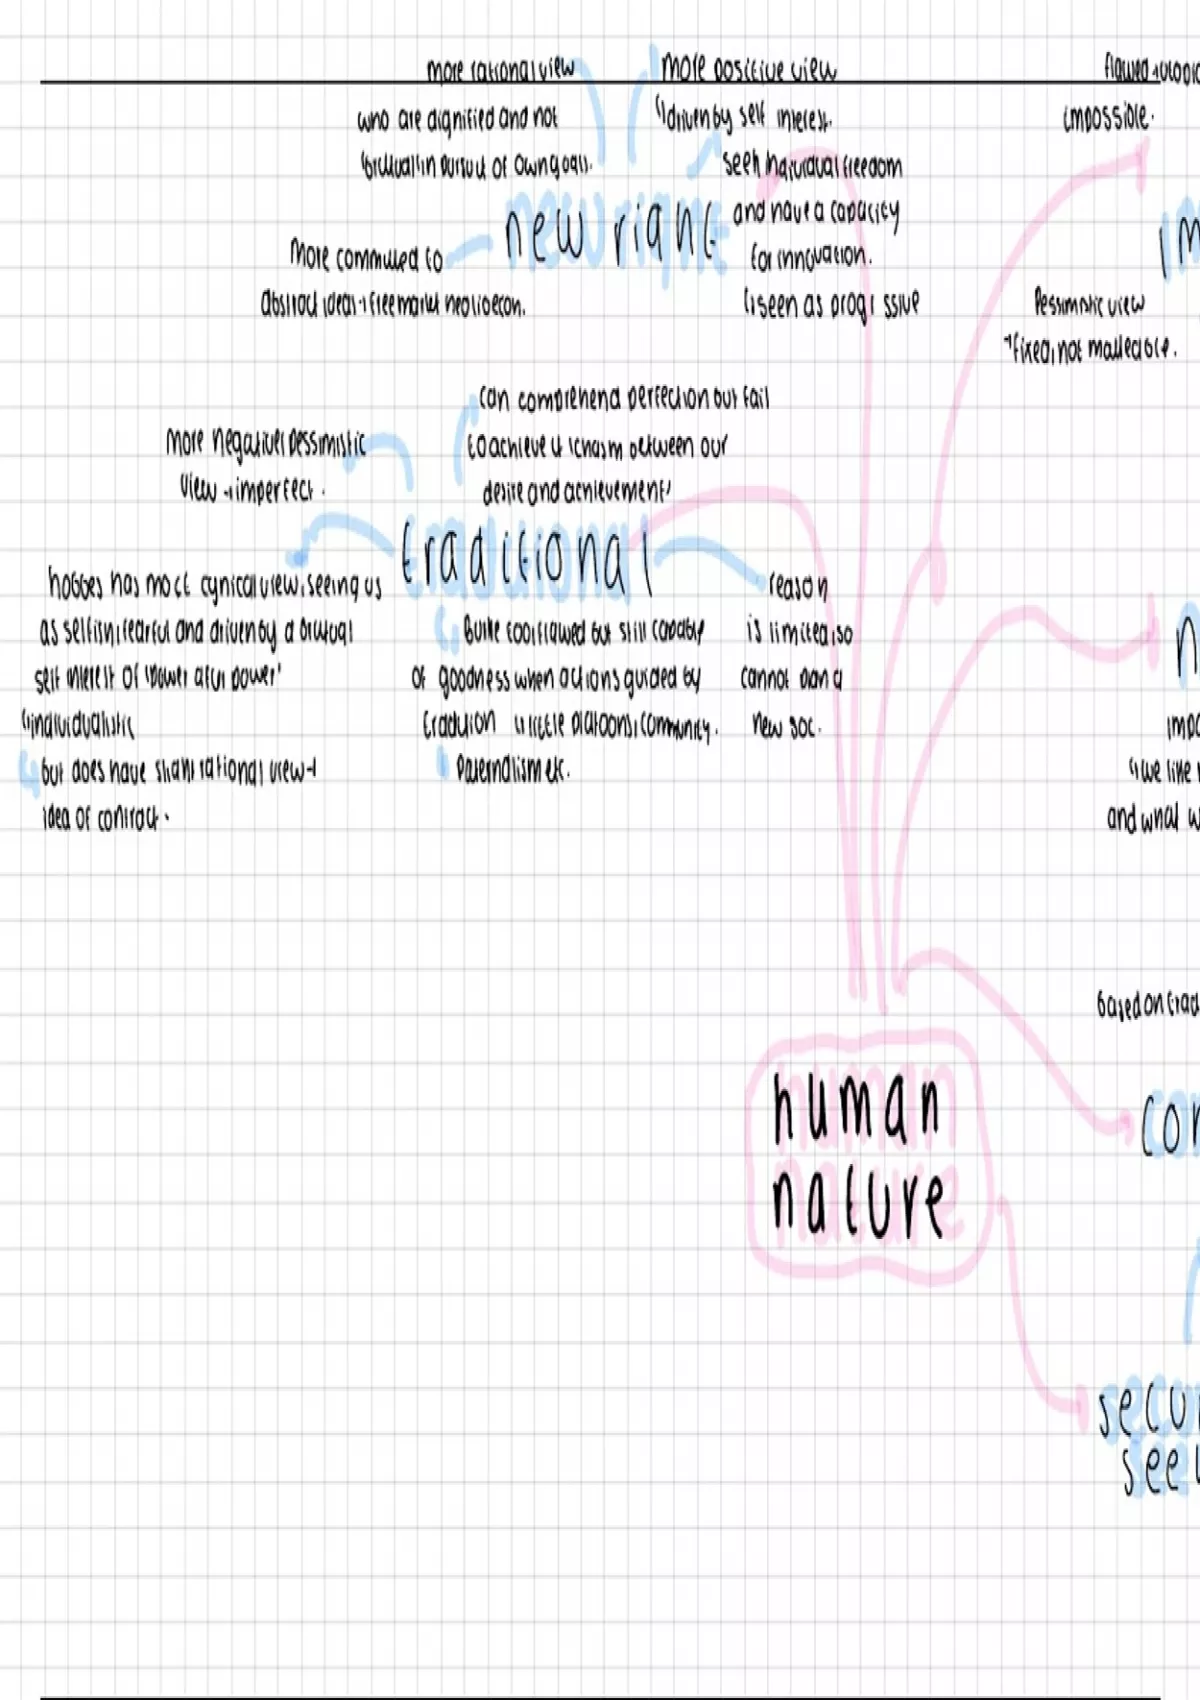 more rational view
who are dignified and not
'brutual' in pursuit of own goals.
more positive view
driven by self interest.
seek individual freedom
and have a capacity
for innovation.
seen as progressive
flawed
impossible.
new right
More committed to
abstract ideas → free market neolibecon.
im
Pessimistic view
→ fixed, not malleable.
can comprehend perfection but fail
to achieve it 'chasm between our
desire and achievement'
more negative/pessimistic
view → imperfect.
traditional
hobbes has most cynical view, seeing us
as selfish, fearful and driven by a brutual
self interest of 'power after power'
individualistic
but does have
rational view →
idea of contract.
burke too, flawed but still capable
of goodness when actions guided by
tradition
little platoons, community.
paternalism etc.
reason
is limited, so
cannot plan a
new soc.
n
we like
and what w
based on trad
human
nature
con
secu
see